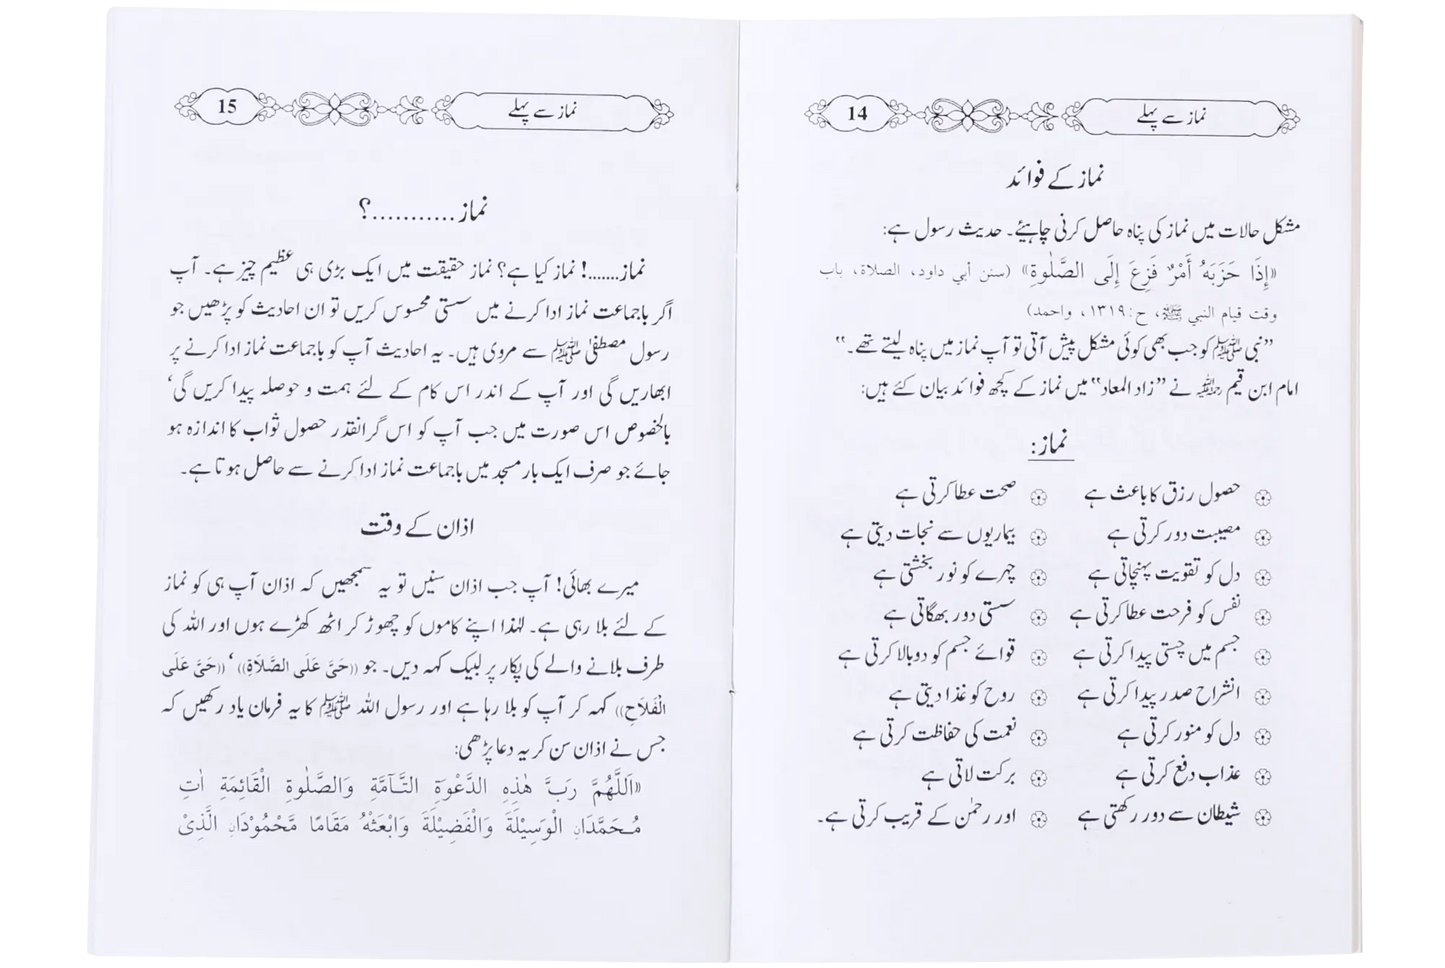 نماز سے پہلے
14
نماز کے فوائد
مشکل حالات میں نماز کی پناہ حاصل کرنی چاہیئے۔ حدیث رسول ہے:
«إِذَا حَزَبَهُ أَمْرٌ فَزِعَ إِلَى الصَّلٰوةِ» (سنن أبي داود، الصلاة، باب
وقت قيام النبي ﷺ، ح:١٣١٩، واحمد)
”نبی ﷺ کو جب بھی کوئی مشکل پیش آتی تو آپ نماز میں پناہ لیتے تھے۔“
امام ابن قیم رحمہ اللہ نے ”زاد المعاد“ میں نماز کے کچھ فوائد بیان کئے ہیں:
نماز:
حصول رزق کا باعث ہے صحت عطا کرتی ہے
مصیبت دور کرتی ہے بیماریوں سے نجات دیتی ہے
دل کو تقویت پہنچاتی ہے چہرے کو نور بخشتی ہے
نفس کو فرحت عطا کرتی ہے سستی دور بھگاتی ہے
جسم میں چستی پیدا کرتی ہے قوائے جسم کو دوبالا کرتی ہے
انشراح صدر پیدا کرتی ہے روح کو غذا دیتی ہے
دل کو منور کرتی ہے نعمت کی حفاظت کرتی ہے
عذاب دفع کرتی ہے برکت لاتی ہے
شیطان سے دور رکھتی ہے اور رحمٰن کے قریب کرتی ہے۔
نماز سے پہلے
15
نماز ...........؟
نماز.......! نماز کیا ہے؟ نماز حقیقت میں ایک بڑی ہی عظیم چیز ہے۔ آپ
اگر باجماعت نماز ادا کرنے میں سستی محسوس کریں تو ان احادیث کو پڑھیں جو
رسول مصطفیٰ ﷺ سے مروی ہیں۔ یہ احادیث آپ کو باجماعت نماز ادا کرنے پر
ابھاریں گی اور آپ کے اندر اس کام کے لئے ہمت و حوصلہ پیدا کریں گی‘
بالخصوص اس صورت میں جب آپ کو اس گرانقدر حصول ثواب کا اندازہ ہو
جائے جو صرف ایک بار مسجد میں باجماعت نماز ادا کرنے سے حاصل ہوتا ہے۔
اذان کے وقت
میرے بھائی! آپ جب اذان سنیں تو یہ سمجھیں کہ اذان آپ ہی کو نماز
کے لئے بلا رہی ہے۔ لہٰذا اپنے کاموں کو چھوڑ کر اٹھ کھڑے ہوں اور اللہ کی
طرف بلانے والے کی پکار پر لبیک کہہ دیں۔ جو ((حَيَّ عَلَى الصَّلَاةِ))‘ ((حَيَّ عَلَى
الْفَلَاحِ)) کہہ کر آپ کو بلا رہا ہے اور رسول اللہ ﷺ کا یہ فرمان یاد رکھیں کہ
جس نے اذان سن کر یہ دعا پڑھی:
«اَللَّهُمَّ رَبَّ هٰذِهِ الدَّعْوَةِ التَّآمَّةِ وَالصَّلٰوةِ الْقَائِمَةِ اٰتِ
مُحَمَّدَانِ الْوَسِيْلَةَ وَالْفَضِيْلَةَ وَابْعَثْهُ مَقَامًا مَّحْمُوْدَانِ الَّذِيْ